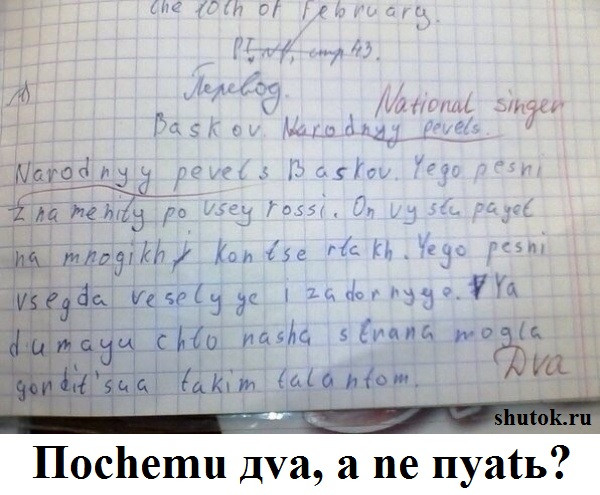 the 10th of February.
PI, N1, стр 43.
1)
Перевод.
National singer
Baskov. Narodnyy pevets.
Narodnyy pevets Baskov. Yego pesni
znamenity po vsey rossi. On vystupayet
na mnogikh kontsertakh. Yego pesni
vsegda veselyye i zadornyye. Ya
dumayu chto nasha strana mogla
gordit'saa takim talantom.
Dva
shutok.ru
Поchemu дva, a ne пyatь?